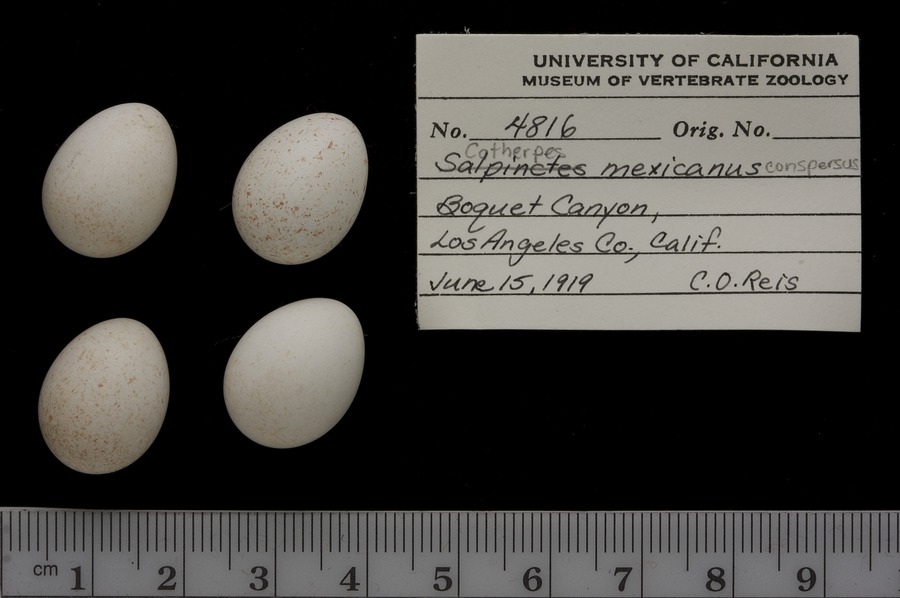 UNIVERSITY OF CALIFORNIA
MUSEUM OF VERTEBRATE ZOOLOGY
No. 4816 Orig. No.
Catherpes
Salpinctes mexicanus conspersus
Boquet Canyon,
Los Angeles Co., Calif.
June 15, 1919 C.O. Reis
cm 1 2 3 4 5 6 7 8 9